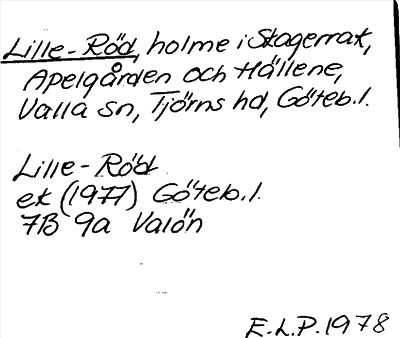 Lille-Röd, holme i Skagerrak,
Apelgården och Hällene,
Valla sn, Tjörns hd, Göteb.l.
Lille-Röd
ek (1977) Göteb.l.
7B 9a Valön
E.L.P.1978